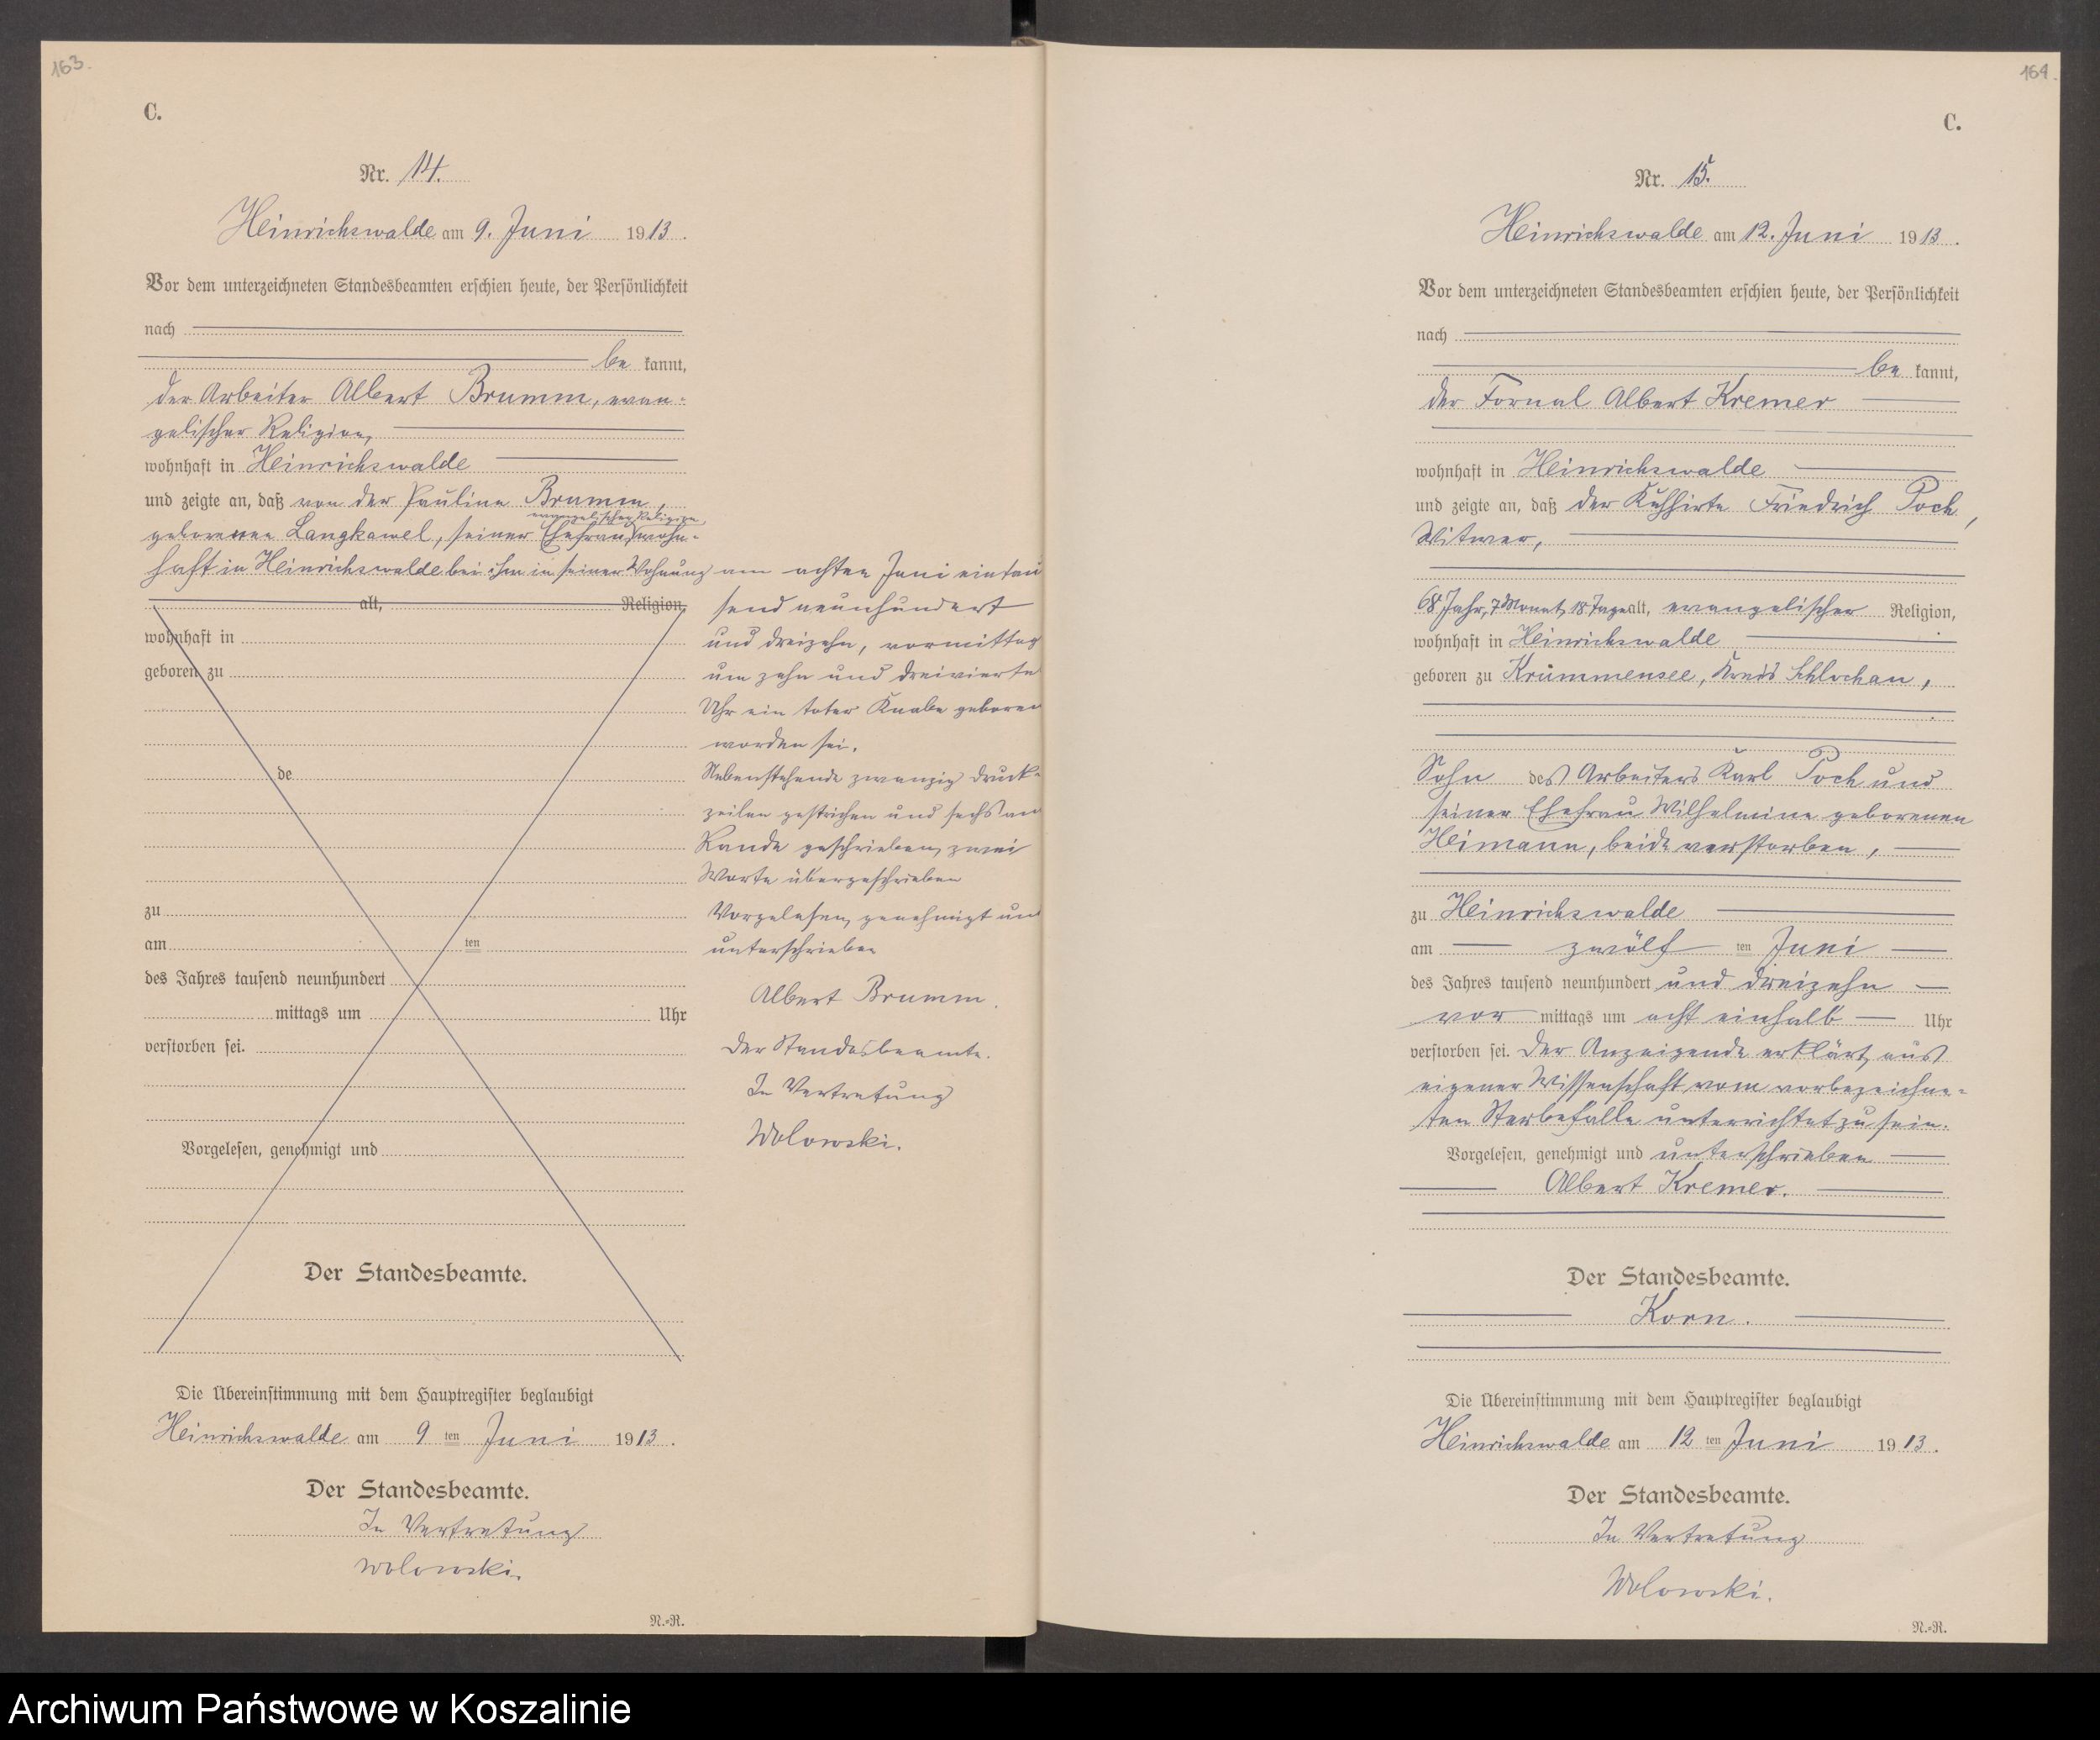 163.
C.
Nr. 14.
Heinrichswalde am 9. Juni 1913.
Vor dem unterzeichneten Standesbeamten erschien heute, der Persönlichkeit
nach
be kannt,
der Arbeiter Albert Brumm, evan-
gelischer Religion,
wohnhaft in Heinrichswalde
und zeigte an, daß von der Pauline Brumm,
evangelischer Religion,
geborenen Langkawel, seiner Ehefrau, wohn-
haft in Heinrichswalde bei ihm in seiner Wohnung am achten Juni eintau
alt, Religion,
send neunhundert
wohnhaft in
und dreizehn, vormittag
geboren zu
um zehn und dreivierte
Uhr ein toter Knabe geboren
worden sei.
de
Nebenstehende zwanzig Druck-
zeilen gestrichen und sechs am
Rande geschrieben, zwei
Worte übergeschrieben
zu
Vorgelesen, genehmigt und
am ten
unterschrieben
des Jahres tausend neunhundert
Albert Brumm.
mittags um Uhr
verstorben sei.
Der Standesbeamte.
In Vertretung
Wolowski.
Vorgelesen, genehmigt und
Der Standesbeamte.
Die Übereinstimmung mit dem Hauptregister beglaubigt
Heinrichswalde am 9 ten Juni 1913.
Der Standesbeamte.
In Vertretung
Wolowski.
N.-R.
164.
C.
Nr. 15.
Heinrichswalde am 12. Juni 1913.
Vor dem unterzeichneten Standesbeamten erschien heute, der Persönlichkeit
nach
be kannt,
der Fornal Albert Kremer
wohnhaft in Heinrichswalde
und zeigte an, daß der Kuhhirte Friedrich Poch,
Witwer,
68 Jahr, 7 Monat, 18 Tage alt, evangelischer Religion,
wohnhaft in Heinrichswalde
geboren zu Krummensee, Kreis Schlochau,
Sohn des Arbeiters Karl Poch und
seiner Ehefrau Wilhelmine geborenen
Heimann, beide verstorben,
zu Heinrichswalde
am zwölf ten Juni
des Jahres tausend neunhundert und dreizehn
vor mittags um acht einhalb Uhr
verstorben sei. Der Anzeigende erklärt, aus
eigener Wissenschaft vom vorbezeichne-
ten Sterbefalle unterrichtet zu sein.
Vorgelesen, genehmigt und unterschrieben
Albert Kremer.
Der Standesbeamte.
Korn.
Die Übereinstimmung mit dem Hauptregister beglaubigt
Heinrichswalde am 12 ten Juni 1913.
Der Standesbeamte.
In Vertretung
Wolowski.
N.-R.
Archiwum Państwowe w Koszalinie